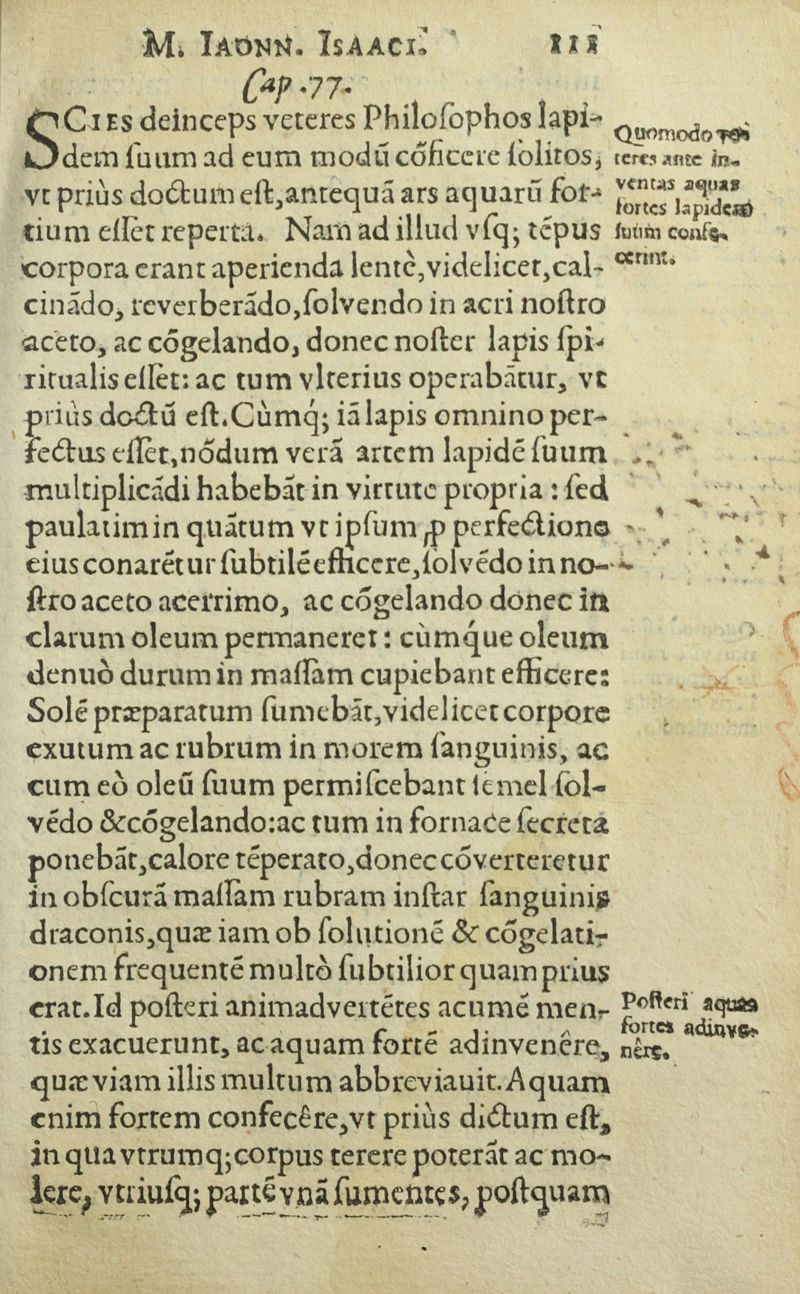 M. IAONN. ISAACI. 111
Cap .77.
SCIES deinceps veteres Philoſophos lapi-
dem ſuum ad eum modū cōficere ſolitos,
vt priùs doctum eſt,antequā ars aquarū for-
tium eſſet reperta. Nam ad illud vſq; tēpus
corpora erant aperienda lentè,videlicet,cal-
cināndo, reverberādo,ſolvendo in acri noſtro
aceto, ac cōgelando, donec noſter lapis ſpi-
ritualis eſſet: ac tum vlterius operabātur, vt
priùs doctū eſt.Cùmq; iā lapis omnino per-
fectus eſſet,nōdum verā artem lapidē ſuum
multiplicādi habebāt in virtute propria : ſed
paulatim in quātum vt ipſum ꝓ perfectione
eius conarētur ſubtilē efficere,ſolvēdo in no-
ſtro aceto acerrimo, ac cōgelando donec in
clarum oleum permaneret : cùmque oleum
denuò durum in maſſam cupiebant efficere:
Solē præparatum ſumebāt,videlicet corpore
exutum ac rubrum in morem ſanguinis, ac
cum eò oleū ſuum permiſcebant ſemel ſol-
vēdo &cōgelando:ac tum in fornace ſecreta
ponebāt,calore tēperato,donec cōverteretur
in obſcurā maſſam rubram inſtar ſanguinis
draconis,quæ iam ob ſolutionē & cōgelati-
onem frequentē multò ſubtilior quam prius
erat.Id poſteri animadvertētes acumē men-
tis exacuerunt, ac aquam fortē adinvenêre,
quæ viam illis multum abbreviauit.Aquam
enim fortem confecêre,vt priùs dictum eſt,
in qua vtrumq;corpus terere poterāt ac mo-
lere, vtriuſq; partē vnā ſumentes, poſtquam
Quomodo ve-
teres ante in-
ventas aquas
fortes lapidem
ſuum confe-
cerint.
Poſteri aquas
fortes adinve-
nêre.